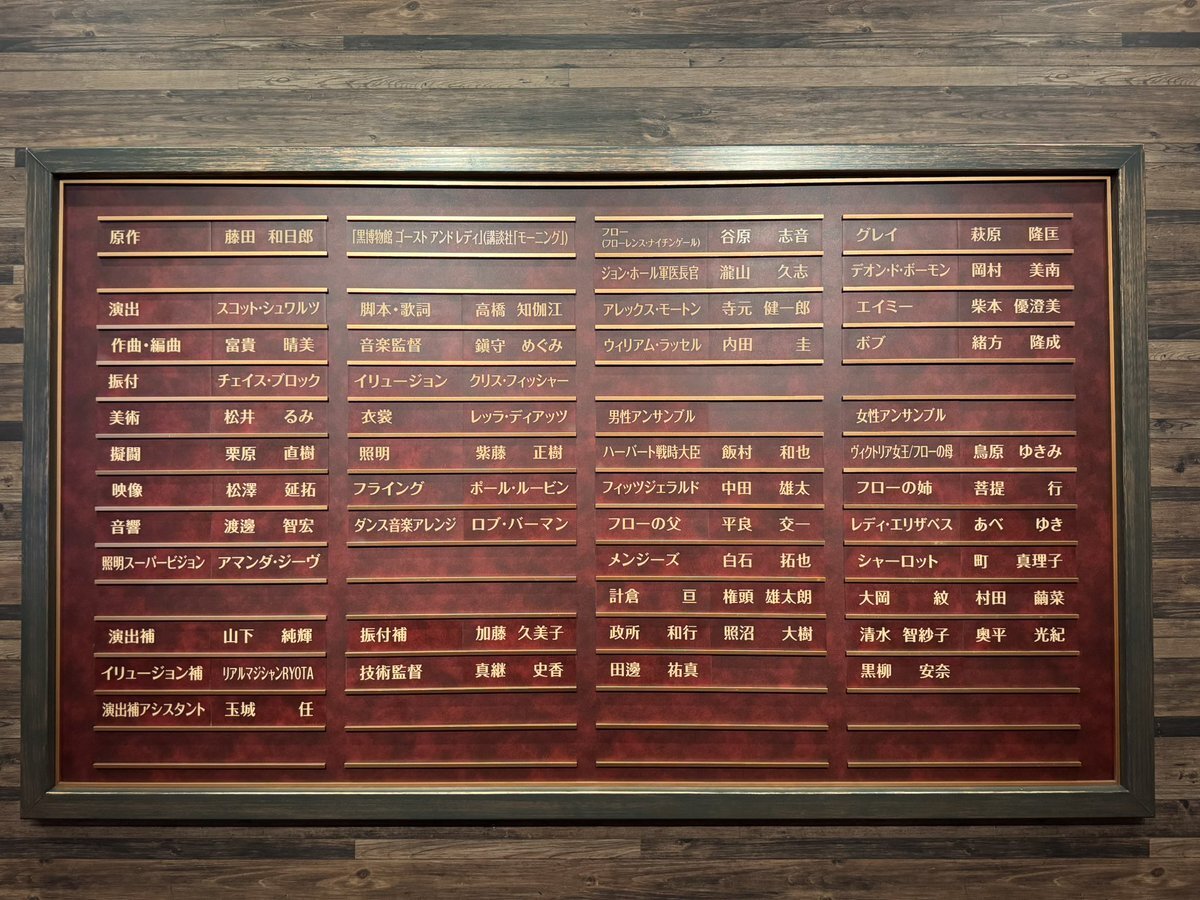 原作 藤田 和日郎
演出 スコット・シュワルツ
作曲・編曲 富貴 晴美
振付 チェイス・ブロック
美術 松井 るみ
擬闘 栗原 直樹
映像 松澤 延拓
音響 渡邊 智宏
照明スーパービジョン アマンダ・ジーヴ
演出補 山下 純輝
イリュージョン補 リアルマジシャンRYOTA
演出補アシスタント 玉城 任
「黒博物館 ゴースト アンド レディ」(講談社「モーニング」)
脚本・歌詞 高橋 知伽江
音楽監督 鎭守 めぐみ
イリュージョン クリス・フィッシャー
衣裳 レッラ・ディアッツ
照明 紫藤 正樹
フライング ポール・ルービン
ダンス音楽アレンジ ロブ・バーマン
振付補 加藤 久美子
技術監督 真継 史香
フロー
(フローレンス・ナイチンゲール) 谷原 志音
ジョン・ホール軍医長官 瀧山 久志
アレックス・モートン 寺元 健一郎
ウィリアム・ラッセル 内田 圭
男性アンサンブル
ハーバート戦時大臣 飯村 和也
フィッツジェラルド 中田 雄太
フローの父 平良 交一
メンジーズ 白石 拓也
計倉 亘 権頭 雄太朗
政所 和行 照沼 大樹
田邊 祐真
グレイ 萩原 隆匡
デオン・ド・ボーモン 岡村 美南
エイミー 柴本 優澄美
ボブ 緒方 隆成
女性アンサンブル
ヴィクトリア女王/フローの母 鳥原 ゆきみ
フローの姉 菩提 行
レディ・エリザベス あべ ゆき
シャーロット 町 真理子
大岡 紋 村田 繭菜
清水 智紗子 奥平 光紀
黒柳 安奈